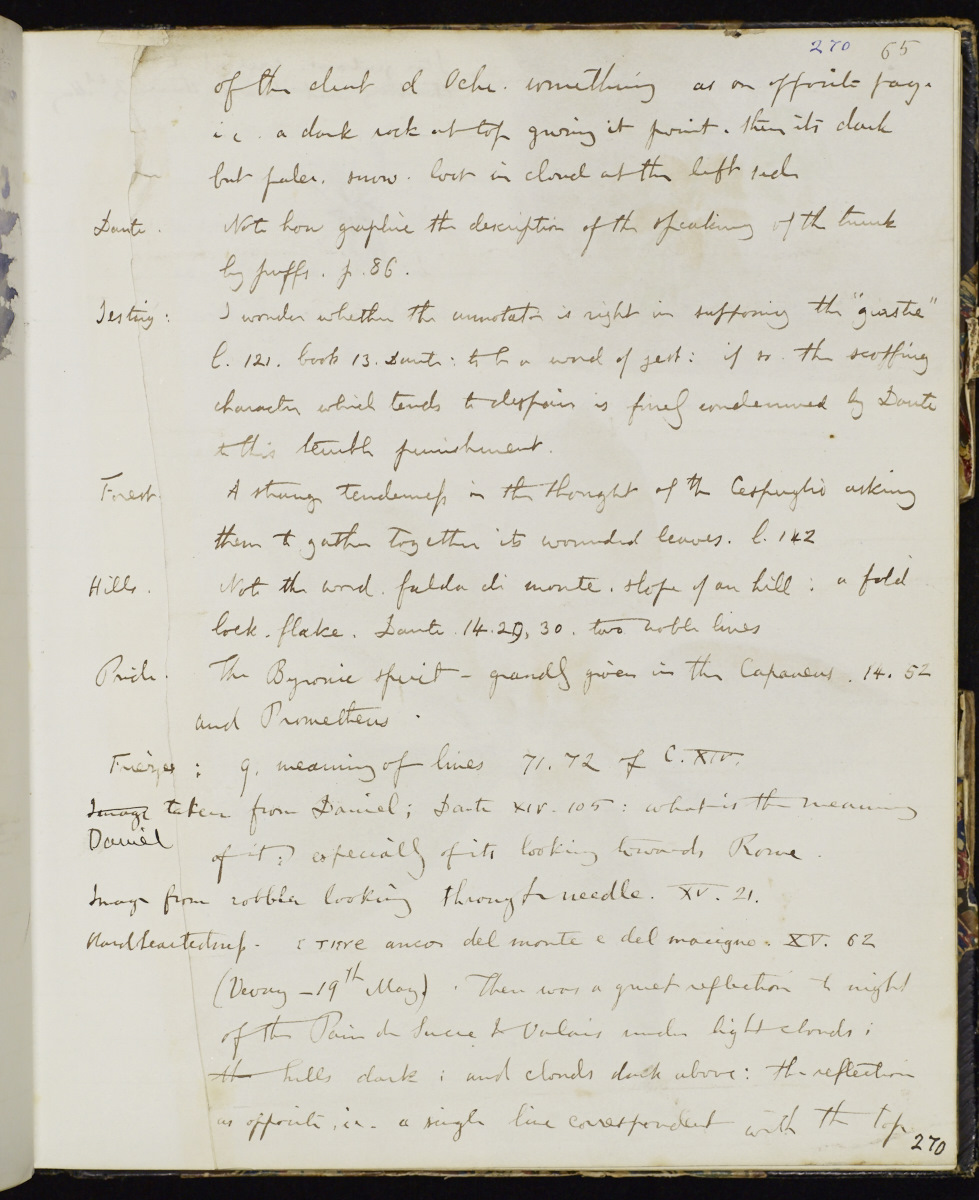 270 65
of the dent d Oche. something as on opposite page
i e. a dark rock at top giving it point. then its dark
but paler. snow. lost in cloud at the left side
Dante. Note how graphic the description of the speaking of the trunk
by puffs. p. 86.
Jesting: I wonder whether the annotator is right in supposing the "giustie"
l. 121. book 13. Dante: to be a word of jest: if so. the scoffing
character which tends to despair is finely condemned by Dante
to this tenth punishment.
Forest. A strange tenderness in the thought of the Cespuglio asking
them to gather together its wounded leaves. l. 142
Hills. Note the word. falda di monte. slope of an hill: a fold
lock. flake. Dante. 14. 29, 30. two noble lines
Pride. The Byronic spirit - grandly given in the Capaneus. 14. 52
and Prometheus.
: q. meaning of lines 71. 72 of C. XIV.
Image taken from Daniel; Dante XIV. 105: what is the meaning
Daniel
of it; especially of its looking towards Rome.
Image from robber looking through needle. XV. 21.
Hardheartedness. E tiene ancor del monte e del macigno. XV. 62
(Vevay - 19th May). There was a quiet reflection to night
of the Pain de Sucre & Valais under light clouds;
the hills dark; and clouds dark above: the reflection
as opposite; i.e. a single line correspondent with the top
270